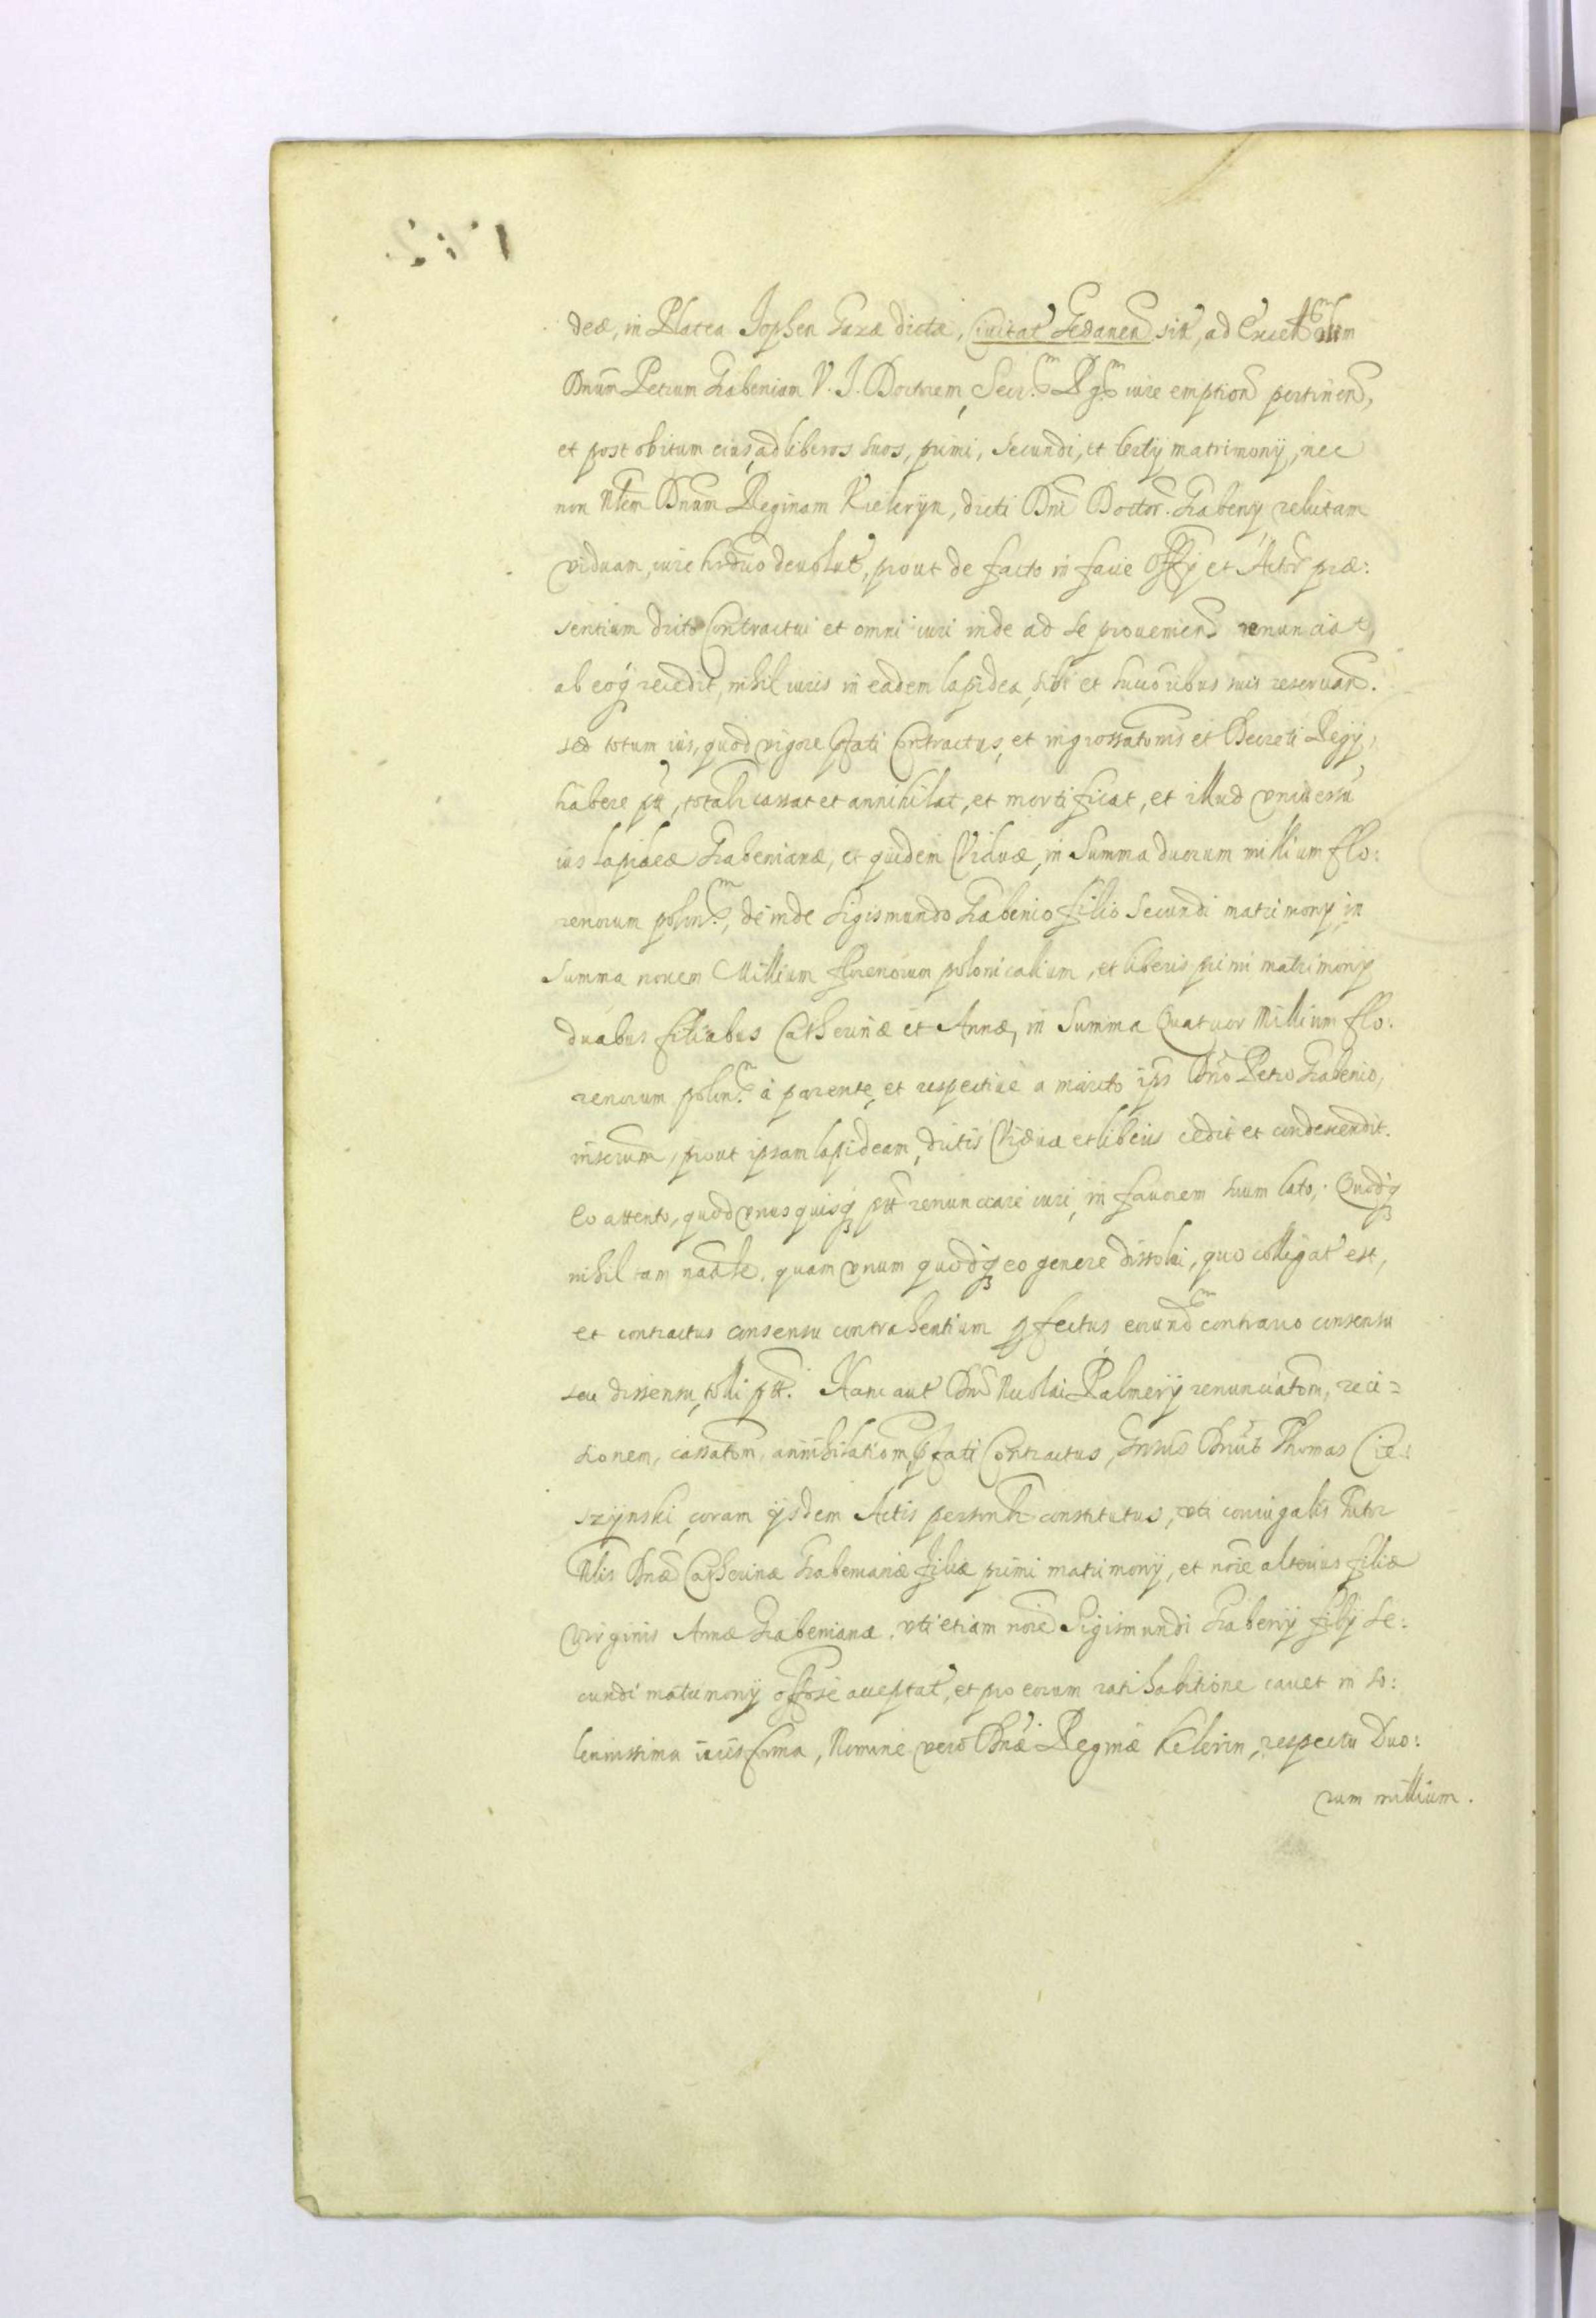 deæ, in Platea Jophen Gazæ dicta, Ciuitat Gedanen sit, ad Excell
Dnum Petrum Grabeniam V. J. Doctorem, Secr. Rg. iure emption pertinen,
et post obitum eius, ad liberos suos, primi, secundi, et tertij matrimonij, nec
non Nlem Dnam Reginam Kieleryn, dicti Dni Doctor. Grabenij relictam
viduam, iure hrdrio deuolut, prout de facto in facie Offij et Actor præ:
sentium dicto Contractui et omni iuri inde ad se prouenien renunciat,
ab eoq recedit, nihil iuris in eadem lapidea, sibi et succoribus suis reseruan.
sed totum ius, quod vigore pfati Contractus, et ingrossationis et Decreti Regij,
habere pt, totalr cassat et annihilat, et mortificat, et illud vniuersu
ius lapideæ Grabenianæ, et quidem Viduæ, in Summa duorum millium flo:
renorum polon., deinde Sigismundo Grabenio filio secundi matrimonij in
summa nouem Millium florenorum polonicalium, et liberis primi matrimonij
duabus filiabus Catherinæ et Annæ, in Summa Quatuor Millium flo:
renorum polon. a parente, et respectiue a marito ips Dno Petro Grabenio,
inscrium, prout ipsam lapideam, dictis Viduæ et liberis cedit et condescendit.
Eo attento, quod vnusquisq ptt renunciare iuri, in fauorem suum lato, Quodq
nihil tam nale, quam vnum quodq eo genere dissolui, quo colligat est,
et contractus consensu contrahentium pfectus eorund contrario consensu
seu dissensu, tolli ptt. Hanc aut Dni Nicolai Palmerij renunciatom, reci=
sionem, cassatom, annihilatiom pfati Contractus, Gnsus Dnus Thomas Cie:
szynski, coram ijsdem Actis personlr constitutus, vti coniugalis tutor
Nlis Dnæ Catherinæ Grabenianæ filiæ primi matrimonij, et noie alterius filiæ
virginis Annæ Grabenianæ, vti etiam noie Sigismundi Grabenij filij se:
cundi matrimonij offose acceptat, et pro eorum ratihabitione cauet in so:
lennissima iuris forma, Nomine vero Dnæ Reginæ Kelerin, respectu Duo:
rum millium.